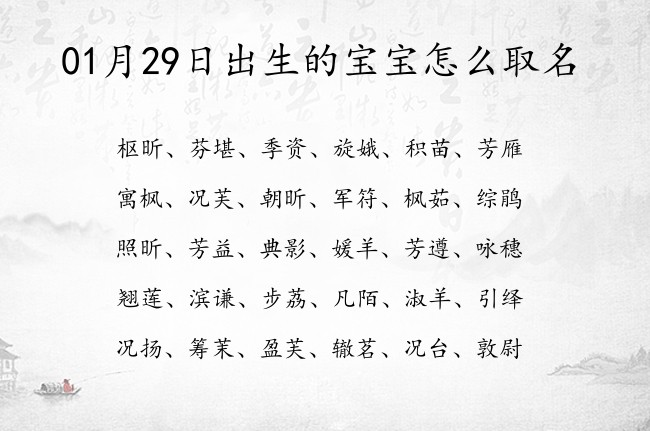 01月29日出生的宝宝怎么取名
枢昕、芬堪、季资、旋娥、积苗、芳雁
寓枫、况芙、朝昕、军符、枫茹、综鹃
照昕、芳益、典影、媛羊、芳遵、咏穗
翘莲、滨谦、步荔、凡陌、淑羊、引绎
况扬、筹茉、盈芙、辙茗、况台、敦尉